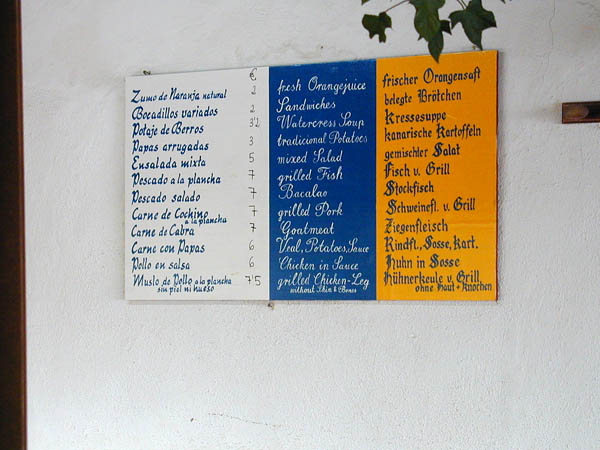 €
Zumo de Naranja natural 2
Bocadillos variados 2
Potaje de Berros 3'2
Papas arrugadas 3
Ensalada mixta 5
Pescado a la plancha 7
Pescado salado 7
Carne de Cochino a la plancha 7
Carne de Cabra 7
Carne con Papas 6
Pollo en salsa 6
Muslo de Pollo a la plancha 7'5
sin piel ni hueso
fresh Orangejuice
Sandwiches
Watercress Soup
tradicional Potatoes
mixed Salad
grilled Fish
Bacalao
grilled Pork
Goatmeat
Veal, Potatoes, Sauce
Chicken in Sauce
grilled Chicken-Leg
without Skin & Bones
frischer Orangensaft
belegte Brötchen
Kressesuppe
kanarische Kartoffeln
gemischter Salat
Fisch v. Grill
Stockfisch
Schweinefl. v. Grill
Ziegenfleisch
Rindfl., Sosse, Kart.
Huhn in Sosse
Hühnerkeule v. Grill,
ohne Haut + Knochen